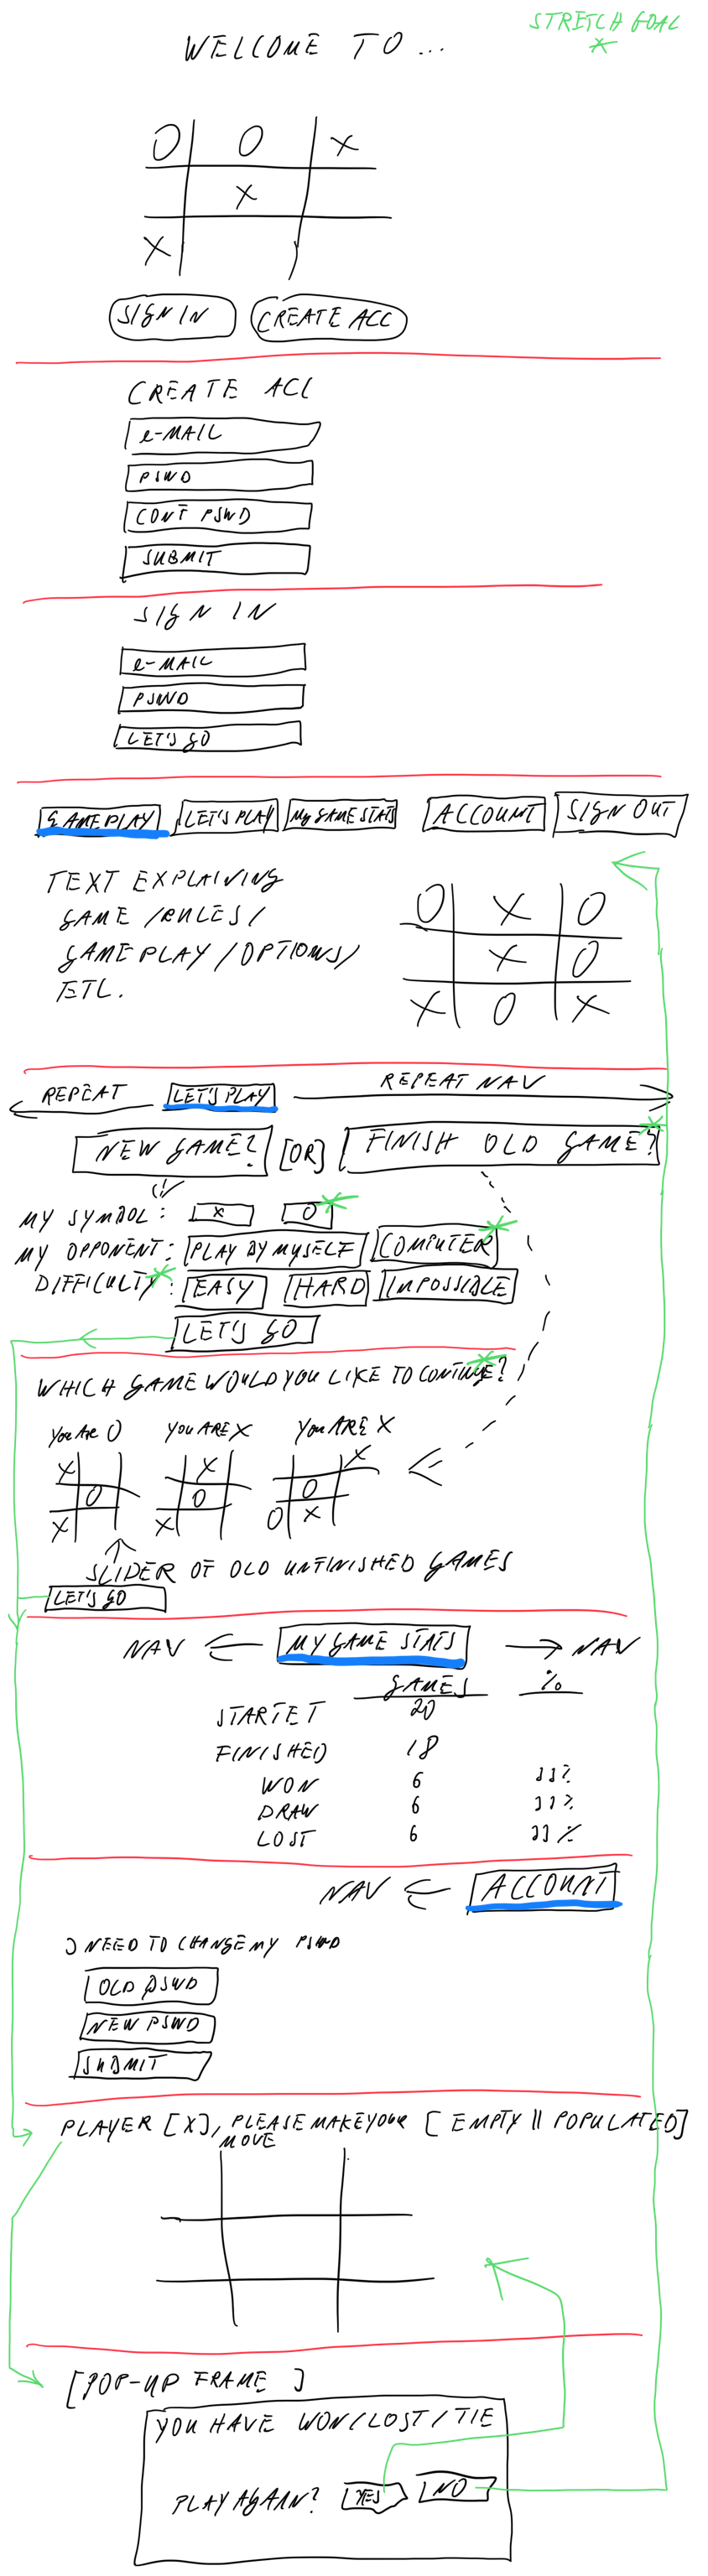 STRETCH GOAL
*
WELCOME TO ...
O O X
X
X
SIGN IN CREATE ACC
CREATE ACC
e-MAIL
PSWD
CONF PSWD
SUBMIT
SIGN IN
e-MAIL
PSWD
LET'S GO
GAMEPLAY LET'S PLAY MY GAME STATS ACCOUNT SIGN OUT
TEXT EXPLAINING
GAME /RULES/
GAMEPLAY /OPTIONS/
ETC.
O X O
X O
X O X
REPEAT LET'S PLAY REPEAT NAV
NEW GAME? [OR] FINISH OLD GAME? *
MY SYMBOL: X O *
MY OPPONENT: PLAY BY MYSELF COMPUTER *
DIFFICULTY *: EASY HARD IMPOSSIBLE
LET'S GO
WHICH GAME WOULD YOU LIKE TO CONTINUE? *
YOU ARE O YOU ARE X YOU ARE X
X X X
O O O
X X O X
SLIDER OF OLD UNFINISHED GAMES
LET'S GO
NAV MY GAME STATS NAV
GAMES %
STARTET 20
FINISHED 18
WON 6 33%
DRAW 6 33%
LOST 6 33%
NAV ACCOUNT
I NEED TO CHANGE MY PSWD
OLD PSWD
NEW PSWD
SUBMIT
PLAYER [X], PLEASE MAKE YOUR [EMPTY || POPULATED]
MOVE
[POP-UP FRAME ]
YOU HAVE WON/LOST/TIE
PLAY AGAIN? YES NO